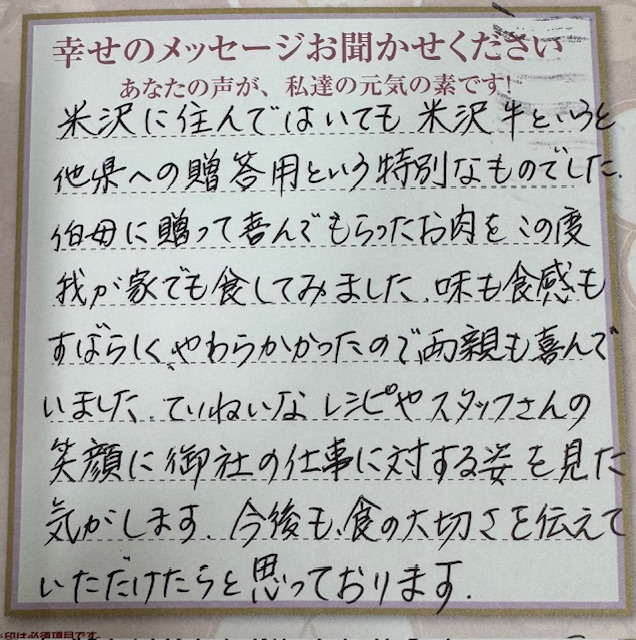 幸せのメッセージお聞かせください
あなたの声が、私達の元気の素です!
米沢に住んではいても米沢牛というと
他県への贈答用という特別なものでした.
伯母に贈って喜んでもらったお肉をこの度
我が家でも食してみました.味も食感も
すばらしく、やわらかかったので両親も喜んで
いました.ていねいなレシピやスタッフさんの
笑顔に御社の仕事に対する姿を見た
気がします.今後も、食の大切さを伝えて
いただけたらと思っております.
印は必須項目です